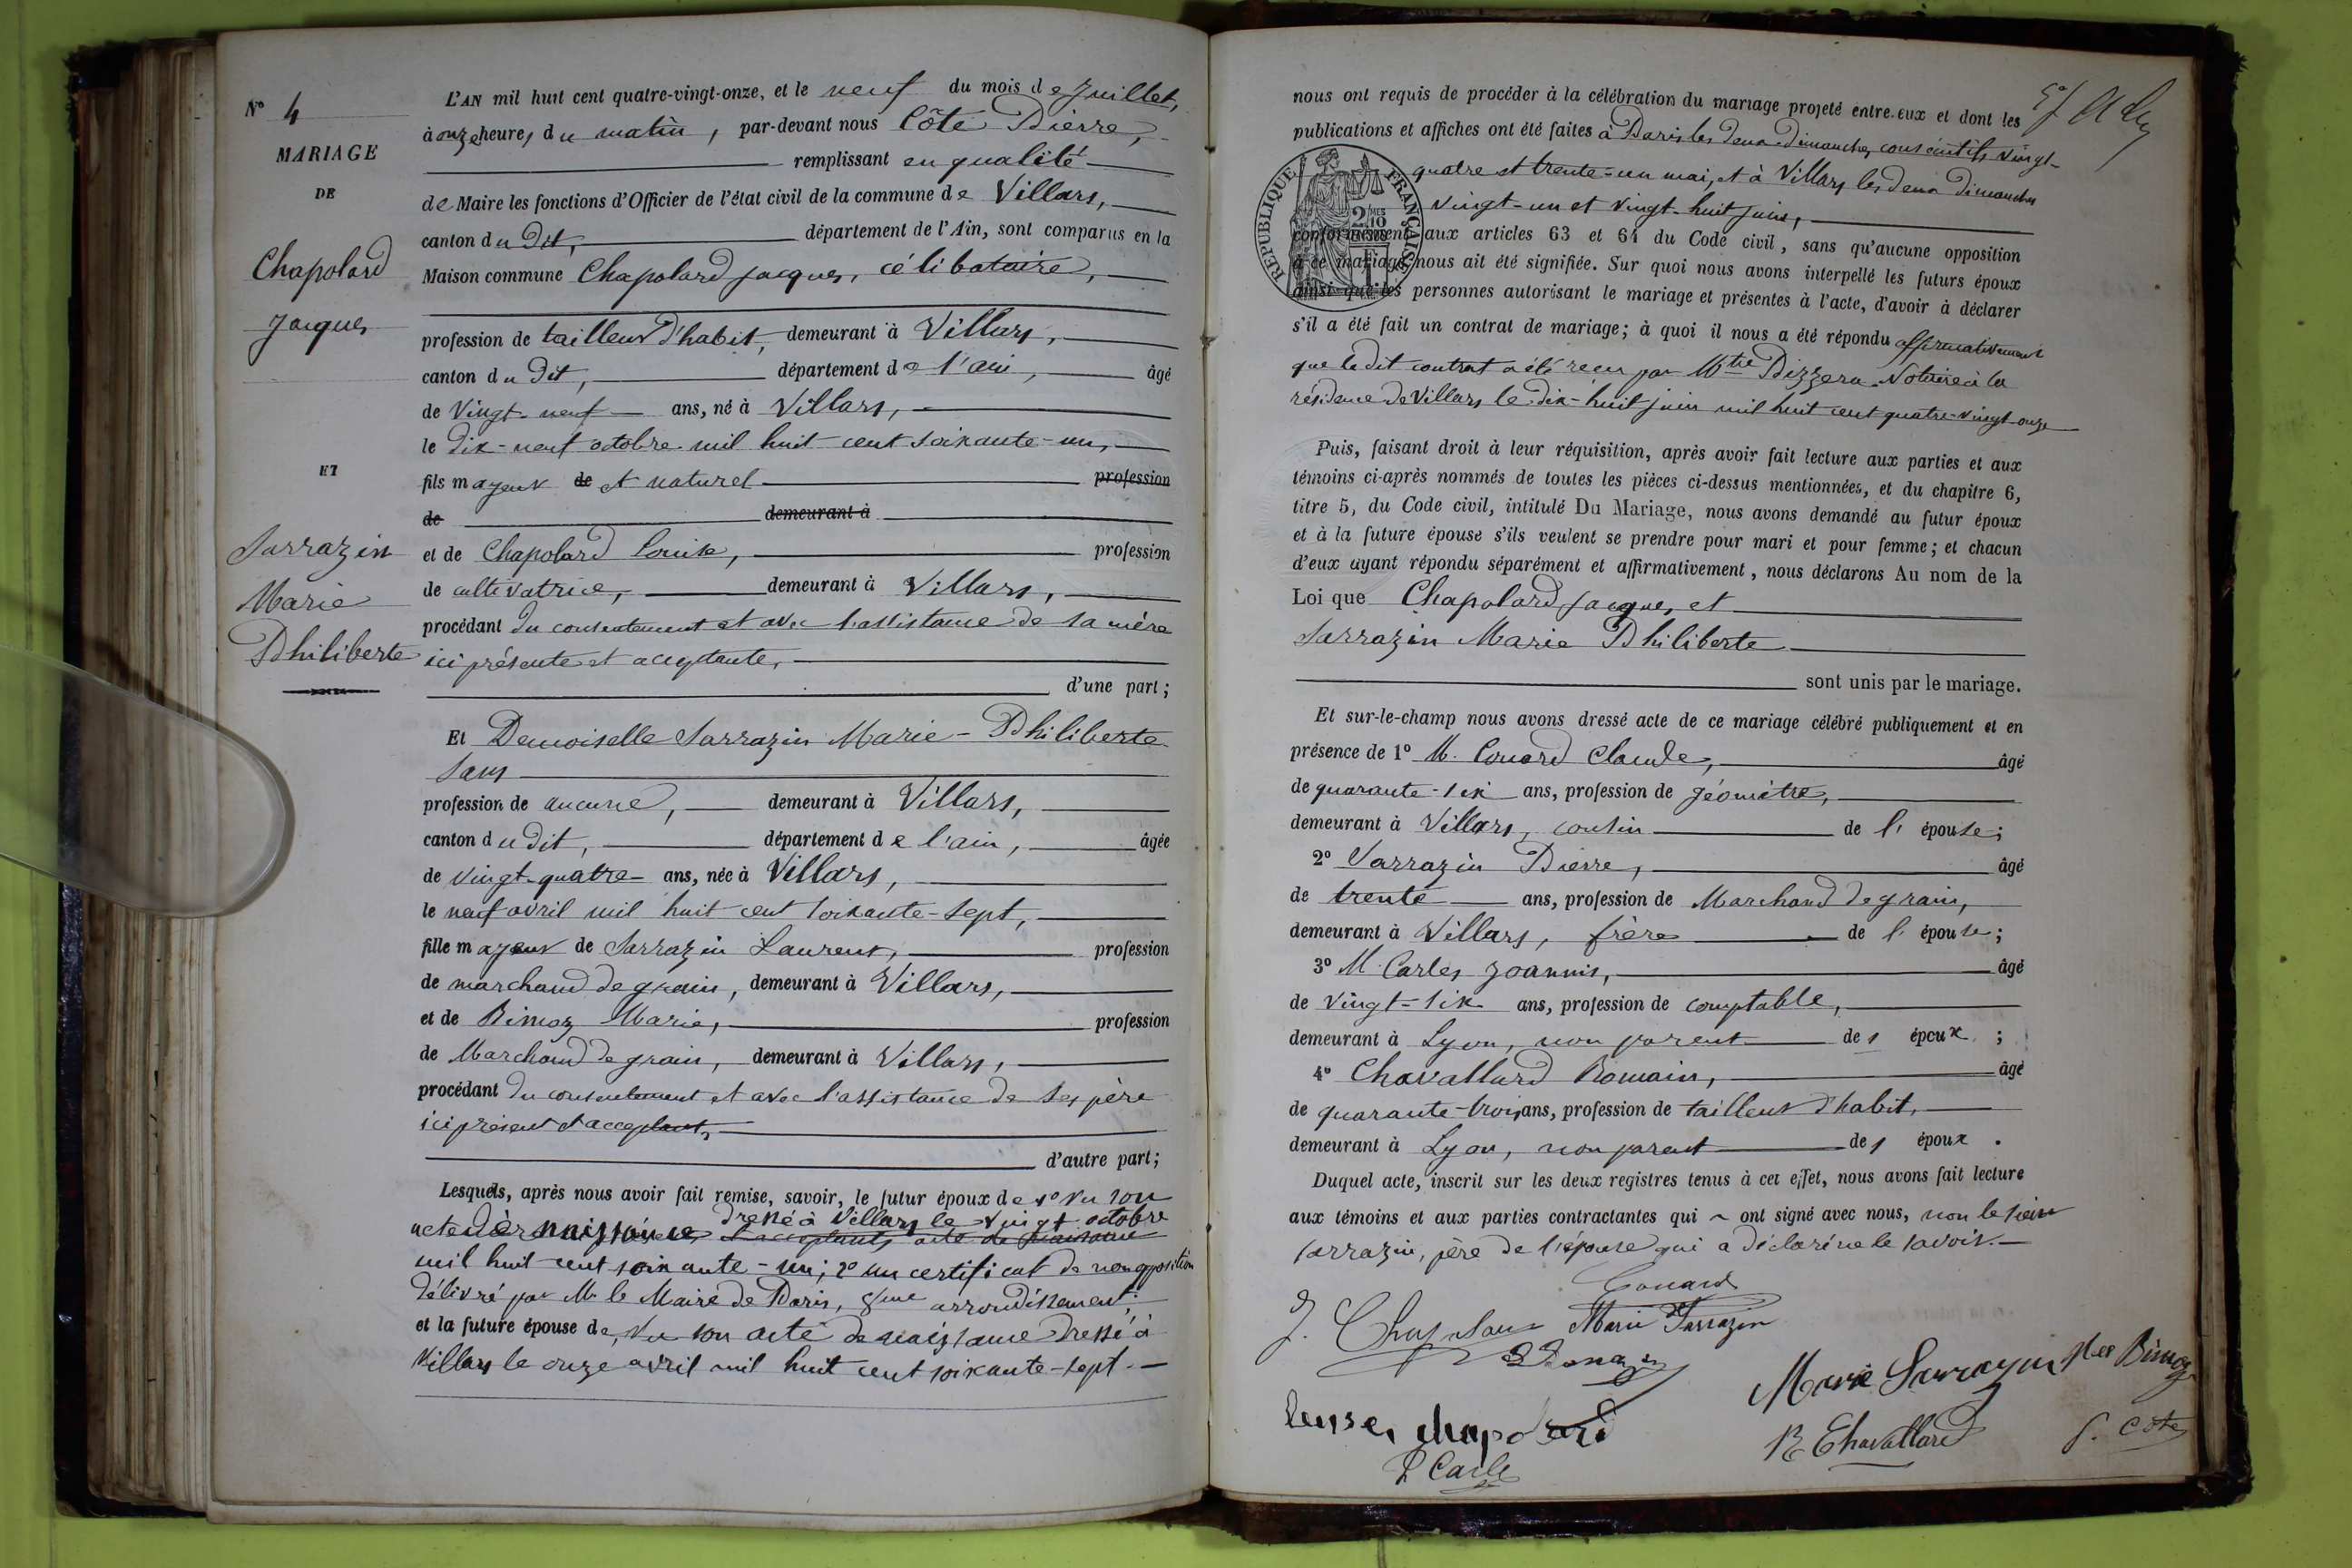 N° 4
MARIAGE
DE
Chapolard
Jacques
ET
Sarrazin
Marie
Philiberte
L'AN mil huit cent quatre-vingt-onze, et le neuf du mois de Juillet,
à onze heures du matin, par-devant nous Côte Pierre,
remplissant en qualité
de Maire les fonctions d'Officier de l'état civil de la commune de Villars,
canton du dit, département de l'Ain, sont comparus en la
Maison commune Chapolard Jacques, célibataire,
profession de tailleur d'habit, demeurant à Villars,
canton du dit, département de l'ain, âgé
de vingt-neuf ans, né à Villars,
le dix-neuf octobre mil huit cent soixante-un,
fils majeur de et naturel profession
de demeurant à
et de Chapolard Louise, profession
de cultivatrice, demeurant à Villars,
procédant du consentement et avec l'assistance de sa mère
ici présente et acceptante,
d'une part;
Et Demoiselle Sarrazin Marie-Philiberte
sans
profession de aucune, demeurant à Villars,
canton du dit, département de l'ain, âgée
de vingt-quatre ans, née à Villars,
le neuf avril mil huit cent soixante-sept,
fille majeur de Sarrazin Laurent, profession
de marchand de grain, demeurant à Villars,
et de Bimoz Marie, profession
de Marchand de grain, demeurant à Villars,
procédant du consentement et avec l'assistance de ses père
ici présent et acceptant,
d'autre part;
Lesquels, après nous avoir fait remise, savoir, le futur époux de 1° vu son
acte de naissance dressé à Villars le vingt octobre
mil huit cent soixante-un; 2° un certificat de non opposition
délivré par Mr le Maire de Paris, 8me arrondissement;
et la future épouse de, vu son acte de naissance dressé à
Villars le onze avril mil huit cent soixante-sept.
nous ont requis de procéder à la célébration du mariage projeté entre eux et dont les
publications et affiches ont été faites à Paris les deux dimanches consécutifs vingt-
quatre et trente-un mai, et à Villars les deux dimanches
vingt-un et vingt-huit juin,
REPUBLIQUE FRANÇAISE
conformément aux articles 63 et 64 du Code civil, sans qu'aucune opposition
à ce mariage nous ait été signifiée. Sur quoi nous avons interpellé les futurs époux
ainsi que les personnes autorisant le mariage et présentes à l'acte, d'avoir à déclarer
s'il a été fait un contrat de mariage; à quoi il nous a été répondu affirmativement
que le dit contrat a été reçu par Mtre Pizzera Notaire à la
résidence de Villars le dix-huit juin mil huit cent quatre-vingt-onze
Puis, faisant droit à leur réquisition, après avoir fait lecture aux parties et aux
témoins ci-après nommés de toutes les pièces ci-dessus mentionnées, et du chapitre 6,
titre 5, du Code civil, intitulé Du Mariage, nous avons demandé au futur époux
et à la future épouse s'ils veulent se prendre pour mari et pour femme; et chacun
d'eux ayant répondu séparément et affirmativement, nous déclarons Au nom de la
Loi que Chapolard Jacques et
Sarrazin Marie Philiberte
sont unis par le mariage.
Et sur-le-champ nous avons dressé acte de ce mariage célébré publiquement et en
présence de 1° M. Couard Claude, âgé
de quarante-six ans, profession de géomètre,
demeurant à Villars, cousin de l'épouse;
2° Sarrazin Pierre, âgé
de trente ans, profession de Marchand de grain,
demeurant à Villars, frère de l'épouse;
3° M. Carles Joannis, âgé
de vingt-six ans, profession de comptable,
demeurant à Lyon, non parent des époux;
4° Chavallard Romain, âgé
de quarante-trois ans, profession de tailleur d'habit,
demeurant à Lyon, non parent des époux.
Duquel acte, inscrit sur les deux registres tenus à cet effet, nous avons fait lecture
aux témoins et aux parties contractantes qui ont signé avec nous, non le sieur
Sarrazin, père de l'épouse qui a déclaré ne le savoir.
Couard
J. Chapolard Marie Sarrazin
Marie Sarrazin née Bimoz
chapolard
R Chavallard P. Côte